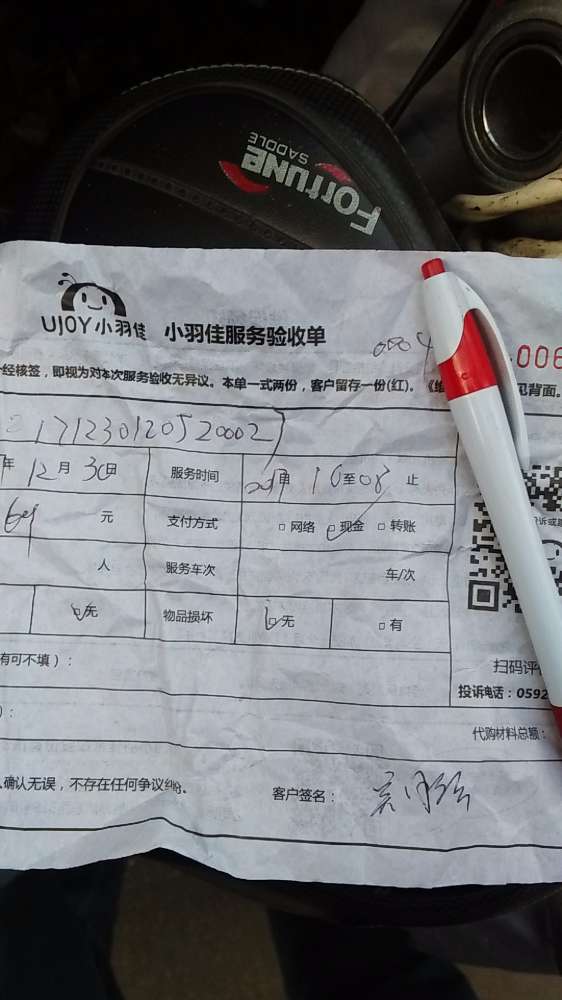 Fortune
SADDLE
UJOY小羽佳 小羽佳服务验收单
0004
006
经核签，即视为对本次服务验收无异议。本单一式两份，客户留存一份(红)。 见背面。
171230120520002
年12月30日 服务时间 至08止
元 支付方式 □网络 □现金 □转账
人 服务车次 车/次
□无 物品损坏 □无 □有
有可不填）：
扫码评
投诉电话：0592
）：
代购材料总额：
确认无误，不存在任何争议纠纷。
客户签名：